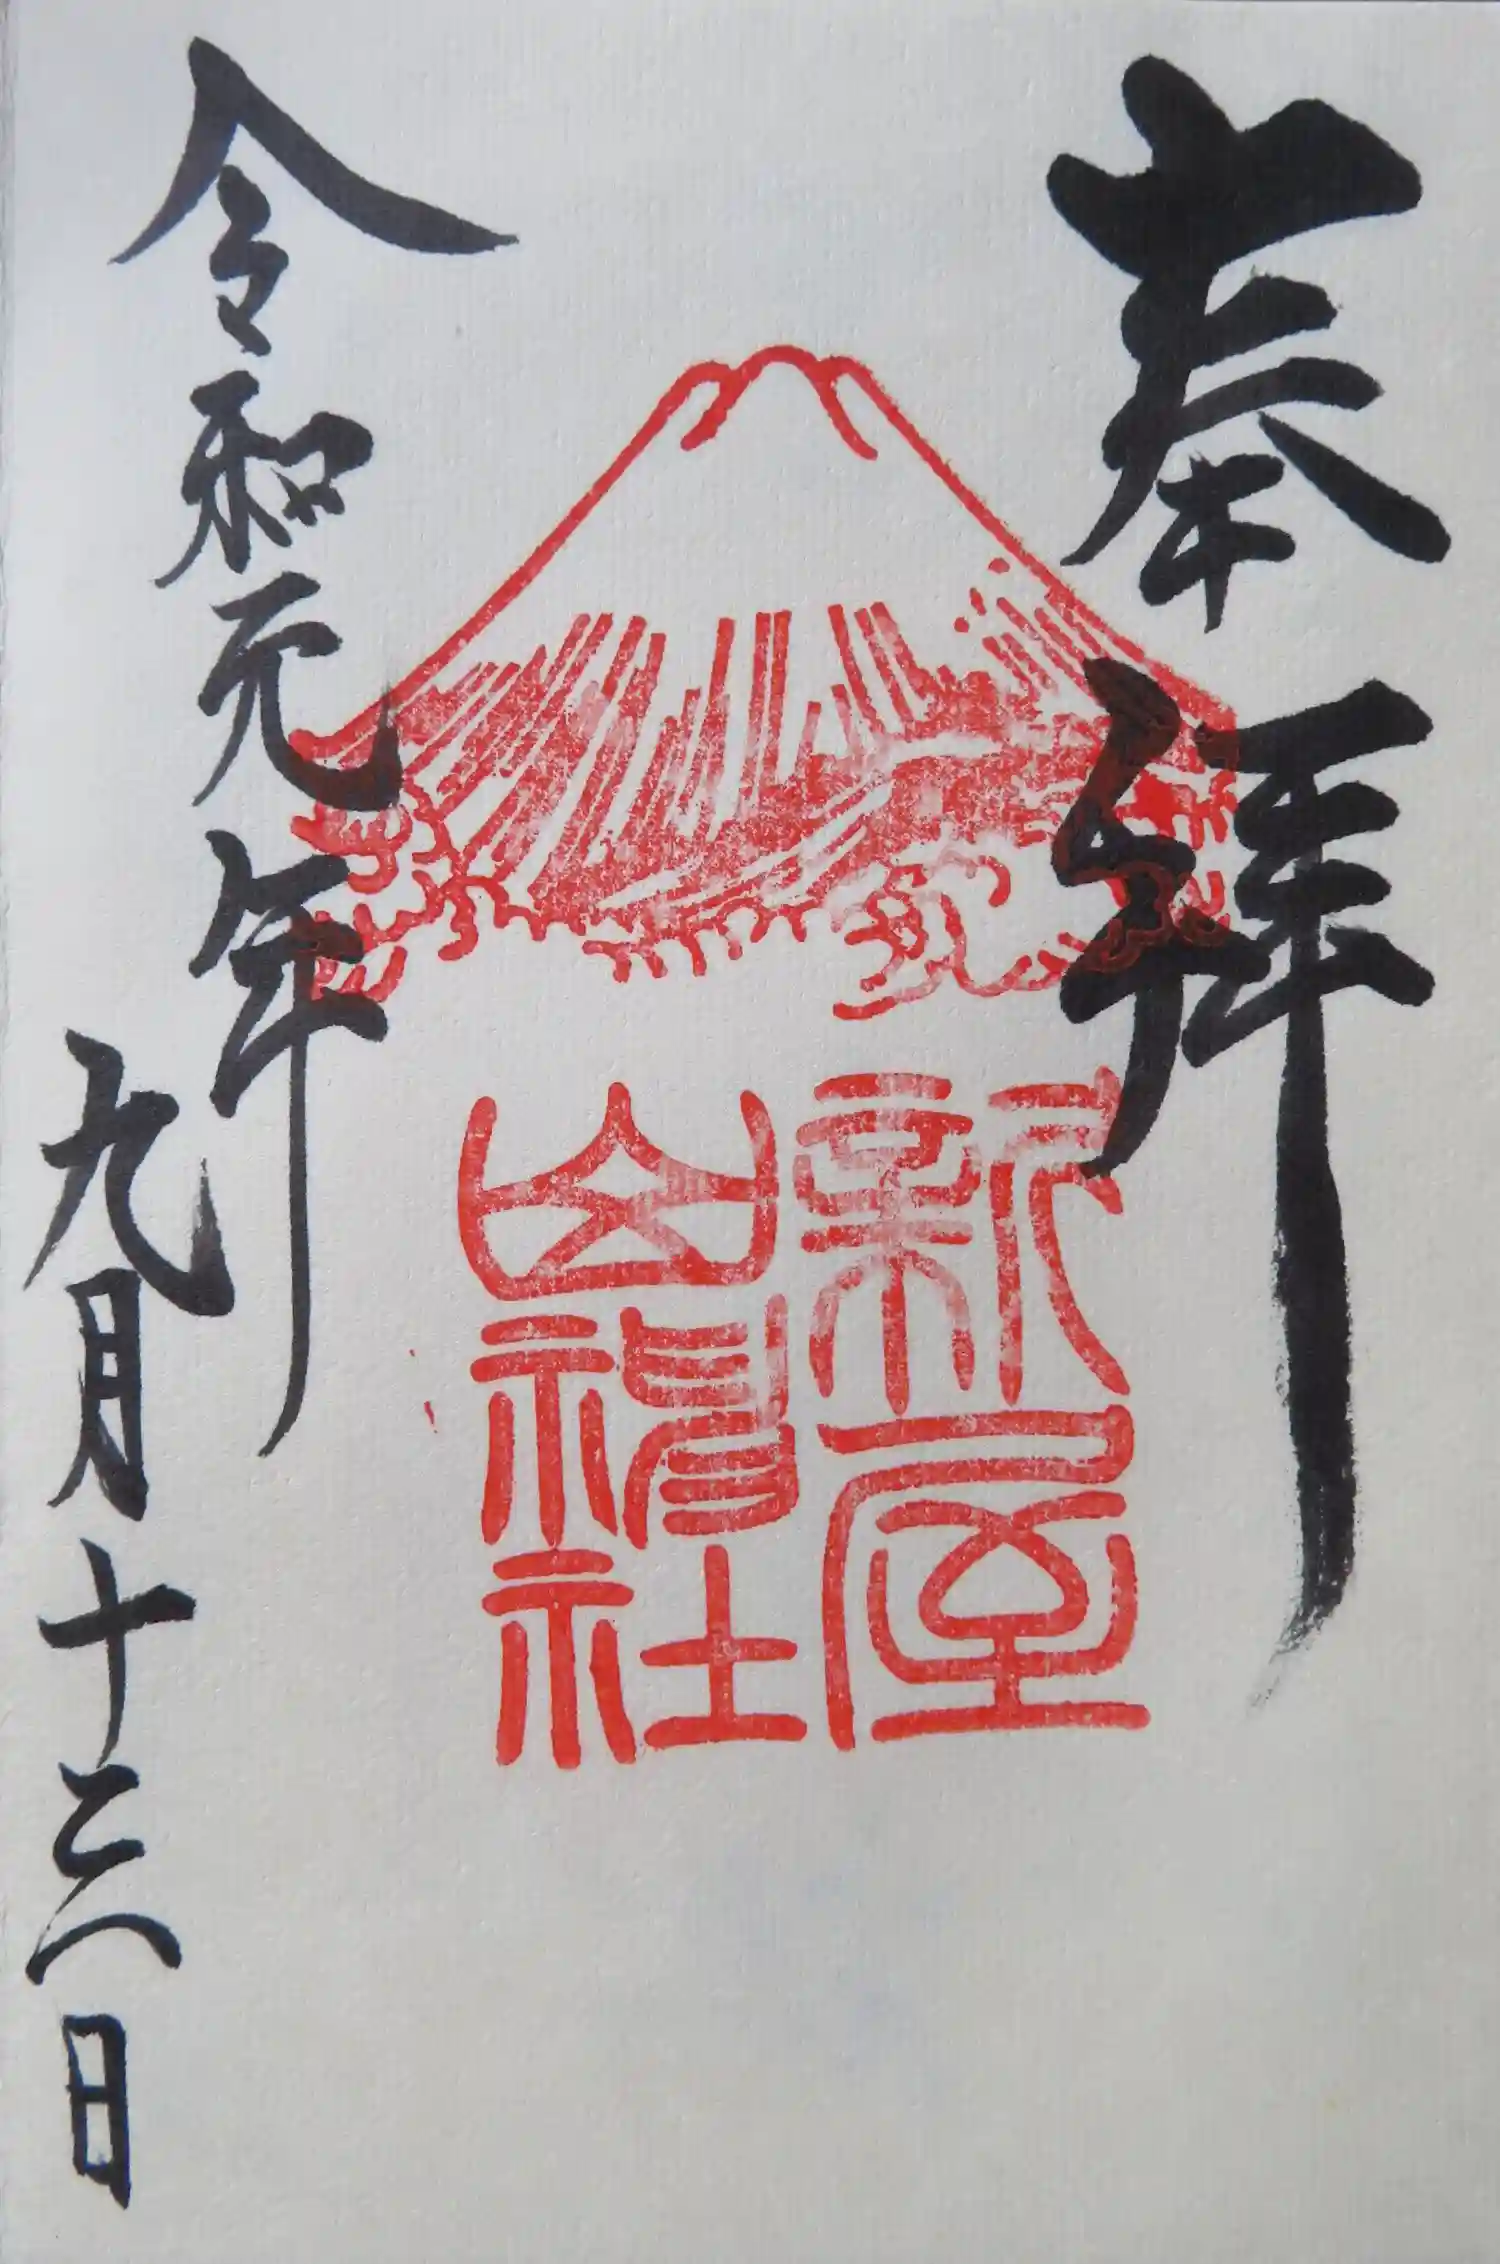 奉拝
新屋
山神社
令和元年
九月十六日